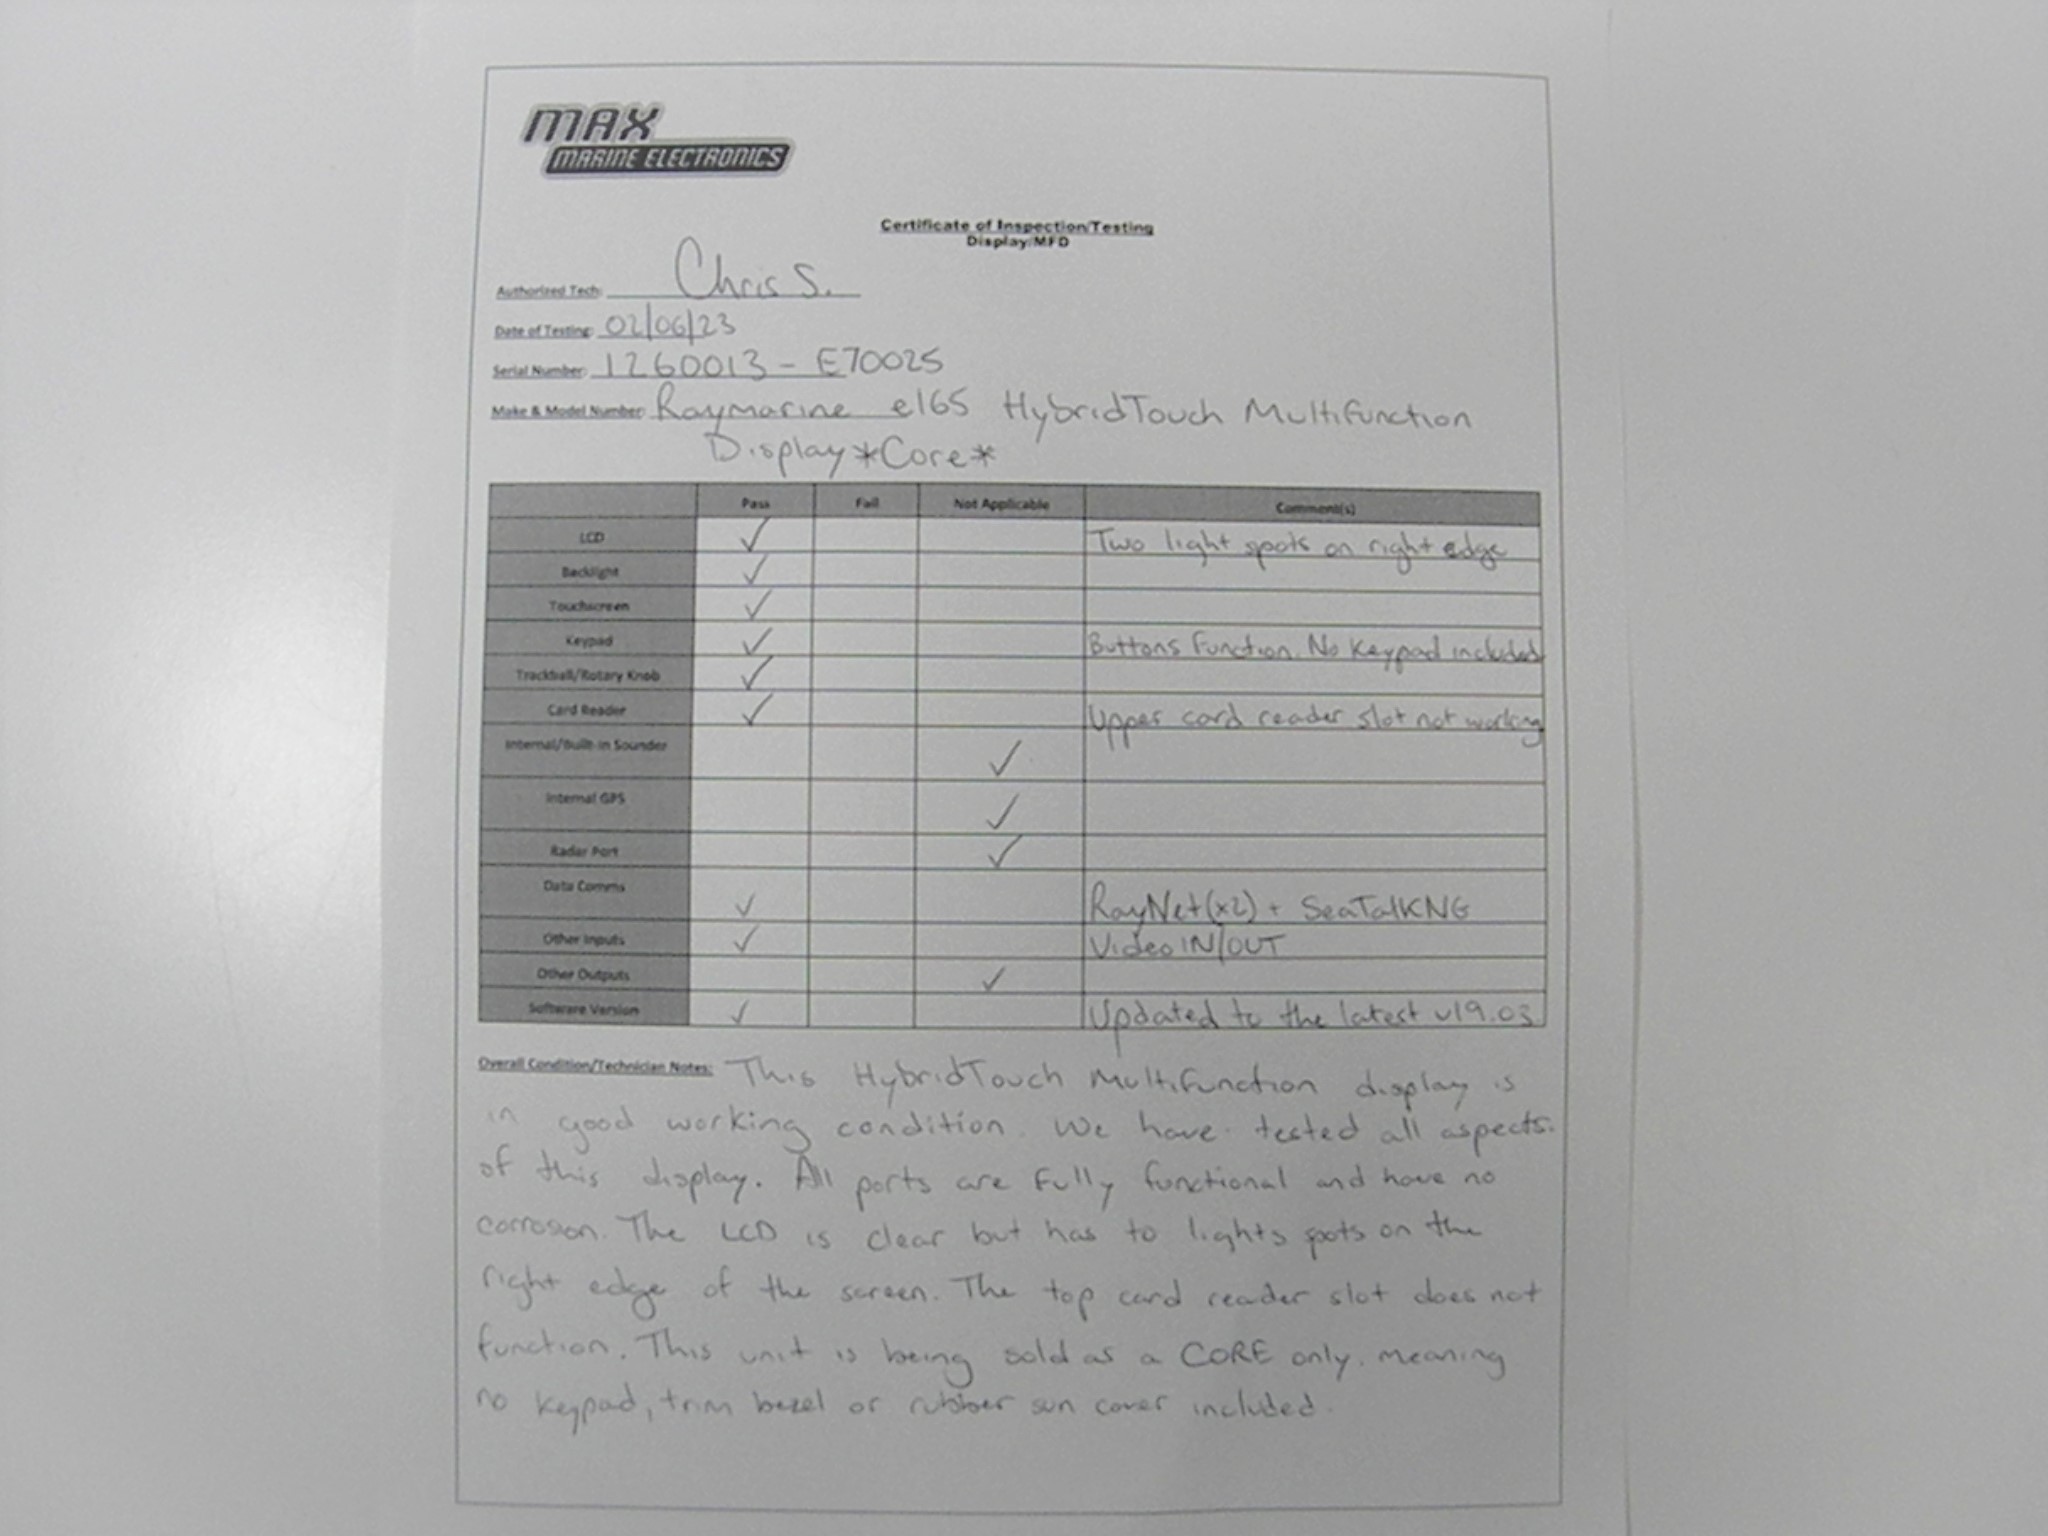 MAX
MARINE ELECTRONICS
Certificate of Inspection/Testing
Display/MFD
Authorized Tech: Chris S.
Date of Testing: 02/06/23
Serial Number: 1260013 - E70025
Make & Model Number: Raymarine e165 HybridTouch Multifunction
Display *Core*
Pass Fail Not Applicable Comment(s)
LCD ✓ Two light spots on right edge
Backlight ✓
Touchscreen ✓
Keypad ✓ Buttons Function. No Keypad included
Trackball/Rotary Knob ✓
Card Reader ✓ Upper card reader slot not working
Internal/Built-in Sounder ✓
Internal GPS ✓
Radar Port ✓
Data Comms ✓ RayNet(x2) + SeaTalkNG
Other Inputs ✓ Video IN/OUT
Other Outputs ✓
Software Version ✓ Updated to the latest v19.03
Overall Condition/Technician Notes: This HybridTouch Multifunction display is
in good working condition. We have tested all aspects
of this display. All ports are fully functional and have no
corrosion. The LCD is clear but has to lights spots on the
right edge of the screen. The top card reader slot does not
function. This unit is being sold as a CORE only. meaning
no keypad, trim bezel or rubber sun cover included.